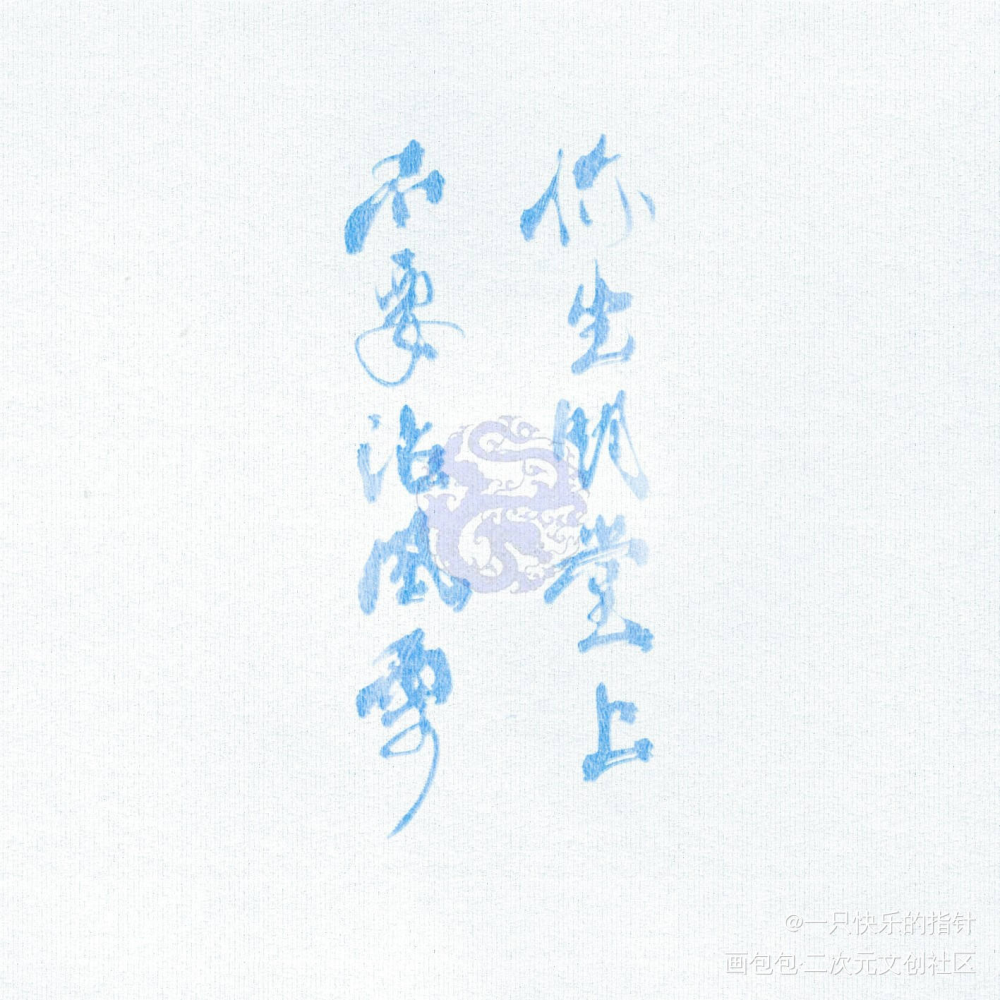 你生明堂上
不要沾风雪
@一只快乐的指针
画包包·二次元文创社区